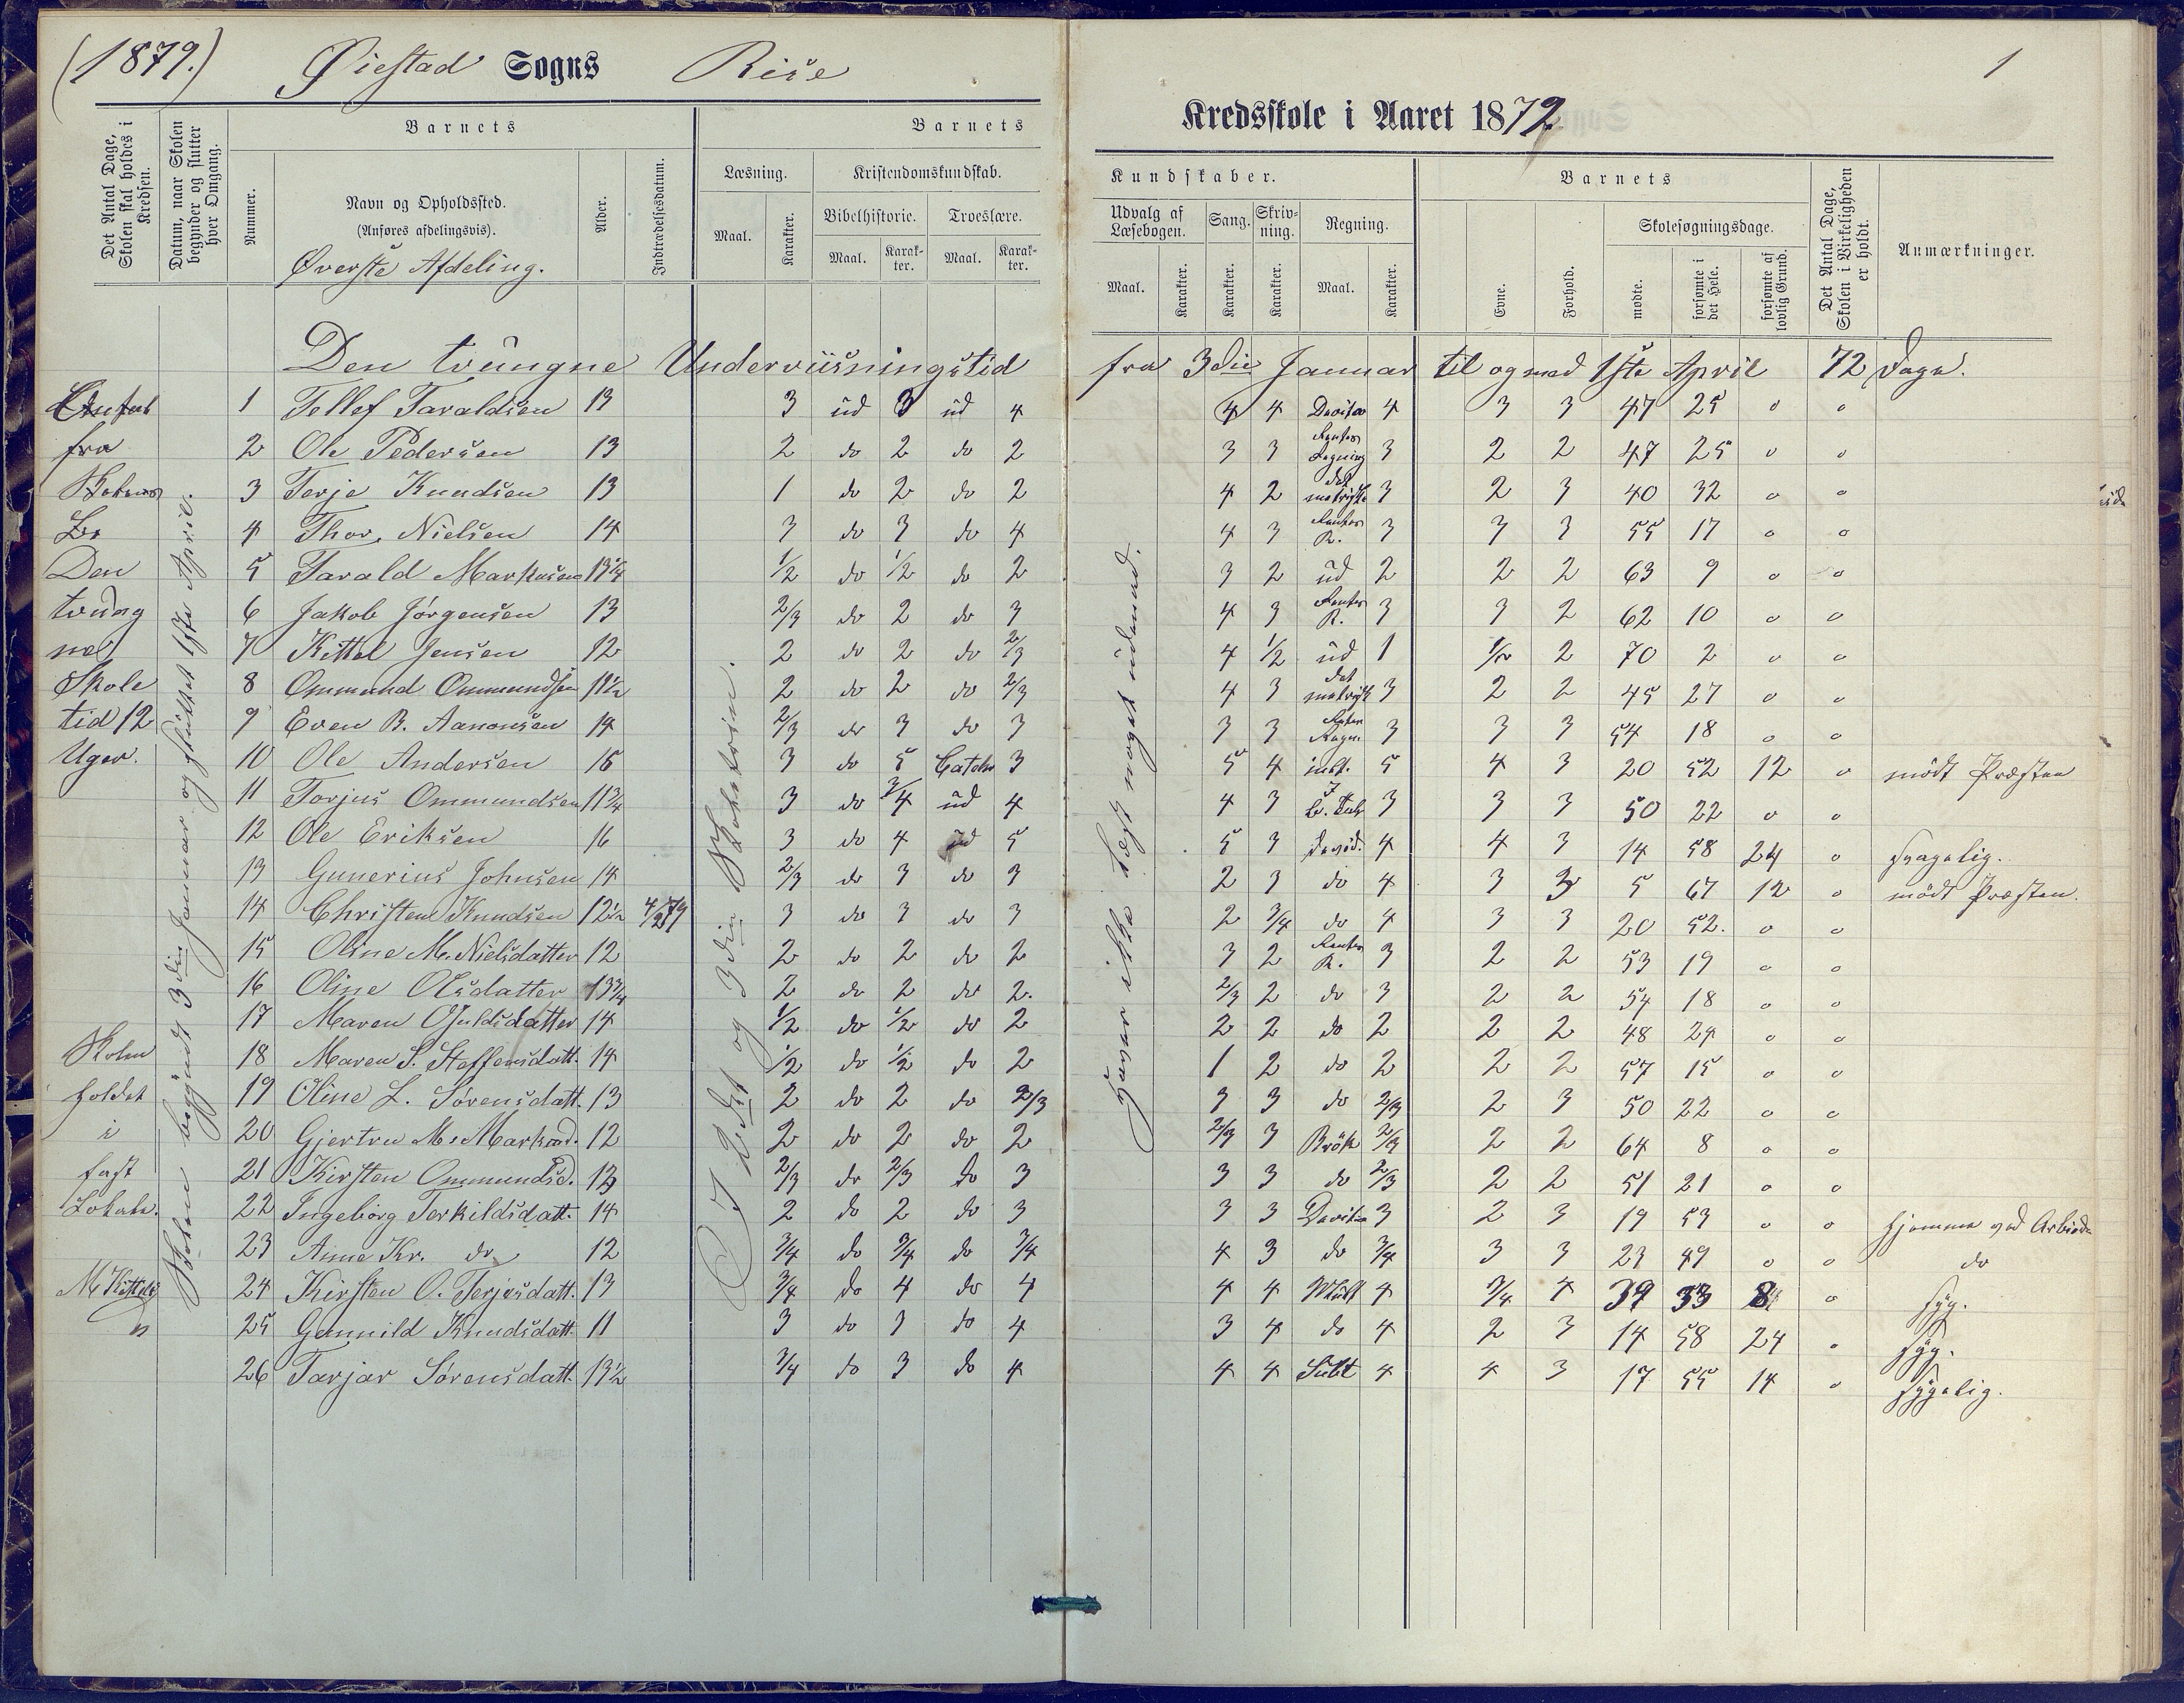 (1879.) Øiestad Sogns Rise
1
Kredsskole i Aaret 1879
Det Antal Dage, Skolen skal holdes i Kredsen.
Datum, naar Skolen begynder og slutter hver Omgang.
Barnets
Nummer.
Navn og Opholdssted.
(Anføres afdelingsvis).
Øverste Afdeling.
Alder.
Indtrædelsesdatum.
Barnets
Læsning.
Maal.
Karakter.
Kristendomskundskab.
Bibelhistorie.
Maal.
Karakter.
Troeslære.
Maal.
Karakter.
Kundskaber.
Udvalg af Læsebogen.
Maal.
Karakter.
Sang.
Karakter.
Skrivning.
Karakter.
Regning.
Maal.
Karakter.
Barnets
Evne.
Forhold.
Skolesøgningsdage.
mødte.
forsømte i det Hele.
forsømte af lovlig Grund.
Det Antal Dage, Skolen i Virkeligheden er holdt.
Anmærkninger.
Den tvungne Underviisningstid fra 3die Januar til og med 1ste April 72 Dage.
fra
Den
tvung
ne
Skole
tid 12
Uger.
Skolen
holdt
i
fast
Lokale.
Skolen begyndt 3die Januar og sluttet 1ste April.
I 2det og 3die
Haver ikke læst noget udenad.
1 Tellef Taraldsen 13 3 ud 3 ud 4 4 4 4 3 3 47 25 0 0
2 Ole Pedersen 13 2 do 2 do 2 3 3 Regning 3 2 2 47 25 0 0
3 Terje Knudsen 13 1 do 2 do 2 4 2 3 2 3 40 32 0 0
4 Thor. Nielsen 14 3 do 3 do 4 4 3 R. 3 3 3 55 17 0 0
5 Tarald Markusen 13 1/2 do 1/2 do 2 3 2 ud 2 2 2 63 9 0 0
6 Jakob Jørgensen 13 2/3 do 2 do 3 4 3 R. 3 3 2 62 10 0 0
7 Kittel Jensen 12 2 do 2 do 2/3 4 1/2 ud 1 1/2 2 70 2 0 0
8 Ommund Ommundsen 11 1/2 2 do 2 do 2/3 4 3 3 2 2 45 27 0 0
9 Even B. Aanonsen 14 2/3 do 3 do 3 3 3 3 3 3 54 18 0 0
10 Ole Andersen 15 3 do 5 3 5 4 5 4 3 20 52 12 0 mødt Præsten
11 Torjus Ommundsen 11 3/4 3 do 3/4 ud 4 4 3 3 3 3 50 22 0 0
12 Ole Eriksen 16 3 do 4 ud 5 5 3 4 4 3 14 58 24 0 svagelig.
13 Gunerius Johnsen 14 2/3 do 3 do 3 2 3 do 4 3 3 5 67 12 0 mødt Præsten.
14 Christen Knudsen 12 1/2 4/2 79 3 do 3 do 3 2 3/4 do 4 3 3 20 52. 0 0
15 Oline M. Nielsdatter 12 2 do 2 do 2 3 2 R. 3 2 2 53 19 0 0
16 Oline Olsdatter 13 3/4 2 do 2 do 2. 2/3 2 do 3 2 2 54 18 0 0
17 Maren 14 1/2 do 1/2 do 2 2 2 do 2 2 2 48 24 0 0
18 Maren S. Steffensdatt. 14 1/2 do 1/2 do 2 1 2 do 2 2 2 57 15 0 0
19 Oline L. Sørensdatt. 13 2 do 2 do 2/3 3 3 do 2/3 2 3 50 22 0 0
20 Gjertru M. Markusd. 12 2 do 2 do 2 2/3 3 Brøk 2/3 2 2 64 8 0 0
21 Kirsten Ommundsd. 13 2/3 do 2/3 do 3 3 3 do 2/3 2 2 51 21 0 0
22 Ingeborg Terkildsdatt. 14 2 do 2 do 3 3 3 3 2 3 19 53 0 0 hjemme ved Arbeide
23 Anne Kr. do 12 3/4 do 3/4 do 3/4 4 3 do 3/4 3 3 23 49 0 0 do
24 Kirsten O. Terjesdatt. 13 3/4 do 4 do 4 4 4 Mult 4 3/4 4 39 33 8 0 syg.
25 Gunnild Knudsdatt. 11 3 do 3 do 4 3 4 do 4 2 3 14 58 24 0 syg.
26 Tarjar Sørensdatt. 13 1/2 3/4 do 3 do 4 4 4 Subt 4 4 3 17 55 14 0 sygelig.